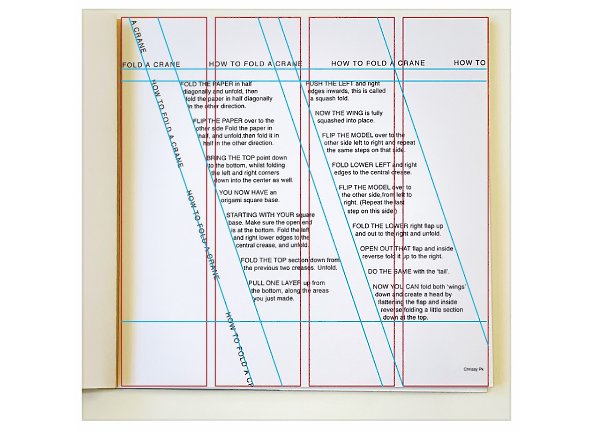 A CRANE
FOLD A CRANE
HOW TO FOLD A CRANE
HOW TO FOLD A CRANE
HOW TO
HOW TO FOLD A CRANE
HOW TO FOLD A CRANE
HOW TO FOLD A CR
FOLD THE PAPER in half
diagonally and unfold, then
fold the paper in half diagonally
in the other direction.
FLIP THE PAPER over to the
other side Fold the paper in
half, and unfold,then fold it in
half in the other direction.
BRING THE TOP point down
to the bottom, whilst folding
the left and right corners
down into the center as well.
YOU NOW HAVE an
origami square base.
STARTING WITH YOUR square
base. Make sure the open end
is at the bottom. Fold the left
and right lower edges to the
central crease, and unfold.
FOLD THE TOP section down from
the previous two creases. Unfold.
PULL ONE LAYER up from
the bottom, along the areas
you just made.
PUSH THE LEFT and right
edges inwards, this is called
a squash fold.
NOW THE WING is fully
squashed into place.
FLIP THE MODEL over to the
other side left to right and repeat
the same steps on that side.
FOLD LOWER LEFT and right
edges to the central crease.
FLIP THE MODEL over to
the other side,from left to
right. (Repeat the last
step on this side)
FOLD THE LOWER right flap up
and out to the right and unfold.
OPEN OUT THAT flap and inside
reverse fold it up to the right.
DO THE SAME with the 'tail'.
NOW YOU CAN fold both 'wings'
down and create a head by
flattening the flap and inside
reverse folding a little section
down at the top.
Chrissy Pk